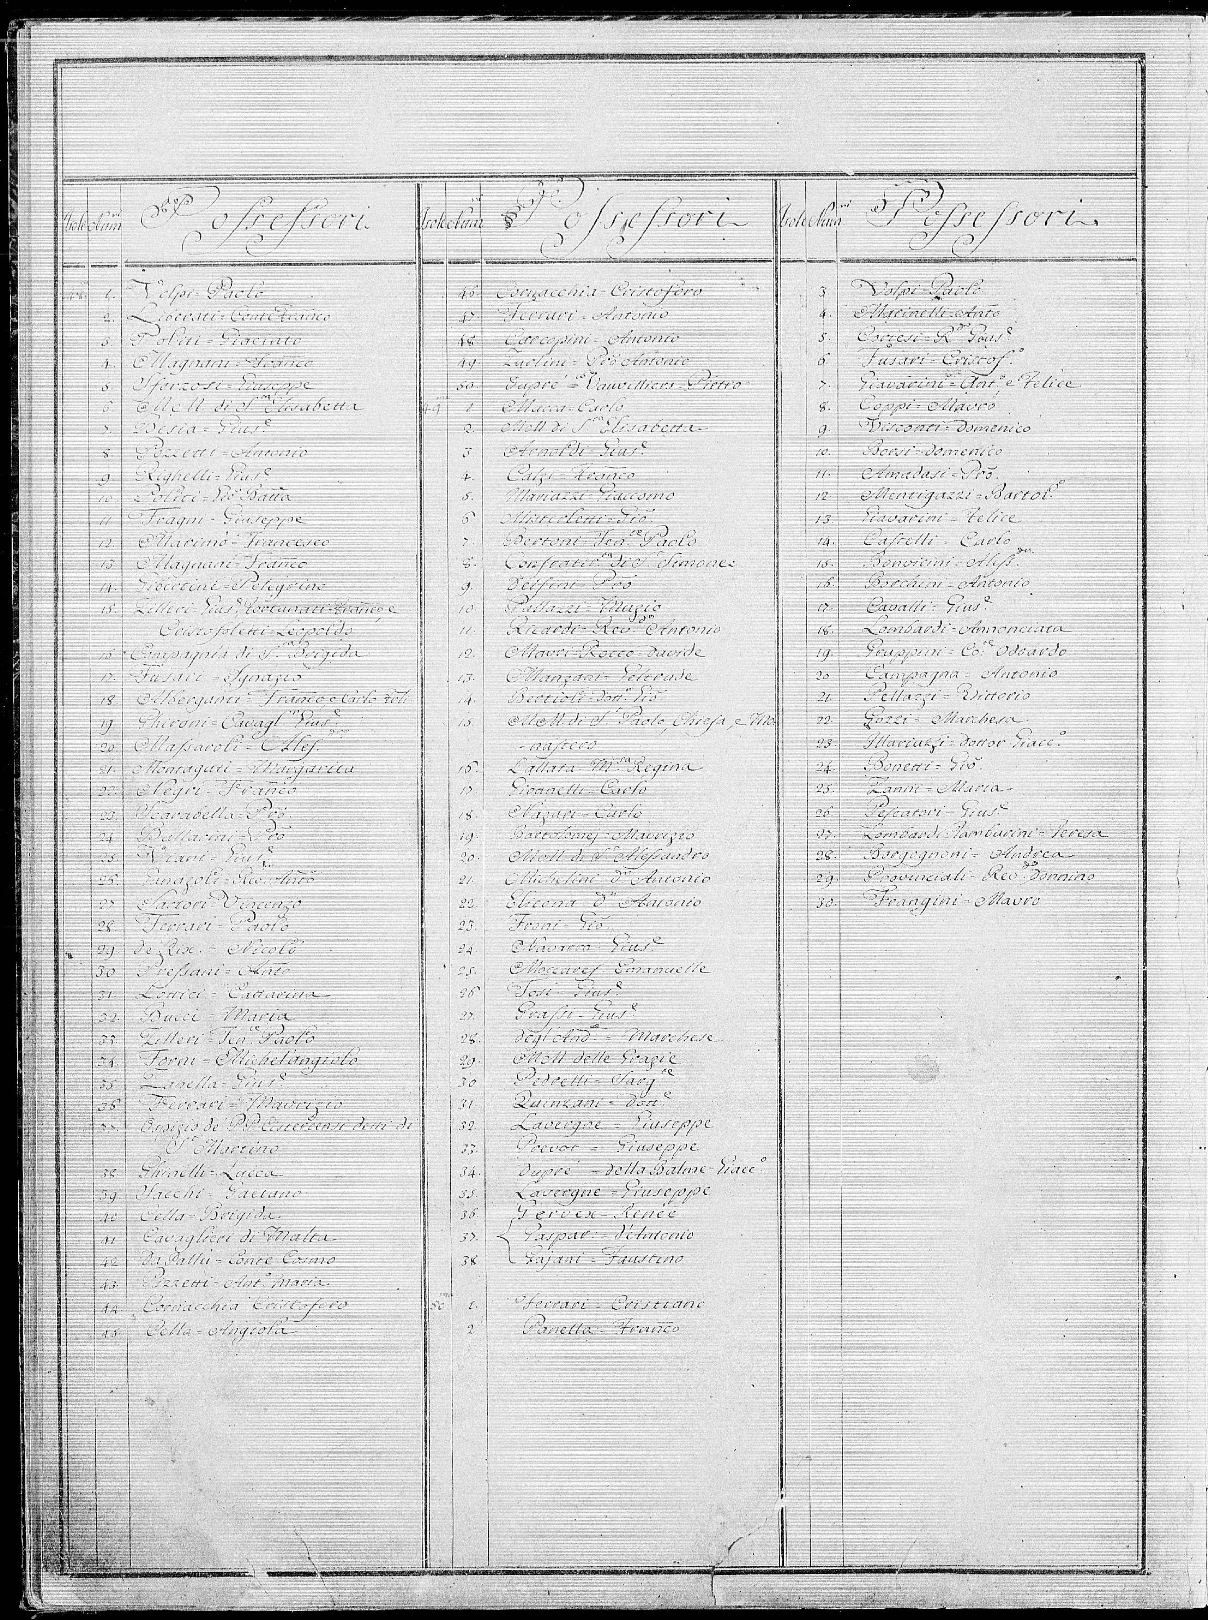 Isole Num.ri Possessori
48 1. Volpi = Paolo
2. Liberati = Conte Franco
3. Politi = Giacinto
4. Magnani = Franco
5. Sforzosi = Giuseppe
6. MM di S. Elisabetta
7. Besia = Gius.e
8. Pizzetti = Antonio
9. Righelli = Gius.e
10. Politi = Gio Batta
11. Fragni = Giuseppe
12. Marimò = Francesco
13. Magnani = Franco
14. = Pelegrino
15. Zilieri Gius.e Fortunati = Franco e
Cristofoletti = Leopoldo
16. Compagnia di S.ta Brigida
17. Fusari = Ignazio
18. Alberganti = Franco e Carlo
19. Ghironi = Cavag.r Gius.e
20. Massaroli = Aless.dro
21. Montaguti = Margarita
22. Negri = Franco
23. Scarabella = Gio
24. Ballarini = Gio
25. Viani = Gius.e
26. Antò
27. Sartori Vincenzo
28. Ferrari = Paolo
29. de Rix = Nicolò
30. Pressani = Antò
31. Lottici = Cattarina
32. Bucci = Maria
33. Zilieri = Paolo
34. Forni = Michelangiolo
35. Zanella = Gius.e
36. Ferrari = Maurizio
37. Ospizio de' PP. Cisterciensi detti di
S. Martino
38. Ghinelli = Lucca
39. Sacchi = Gaetano
40. Cella = Brigida
41. Cavaglieri di Malta
42. Da Palhù = Conte Cosmo
43. Pizzetti = Ant.o Maria
44. Cornacchia Cristoforo
45. Cella = Angiola
Isole Num.ri Possessori
46. Cornacchia = Cristoforo
47. Ferrari = Antonio
48. Carcopini = Antonio
49. Zuelini = Gio Antonio
50. Dupré = Vauvilliers = Pietro
49 1. Macca = Carlo
2. MM di S. Elisabetta
3. Arnoldi = Gius.e
4. Calzi = Franco
5. Mariazzi = Giacomo
6. Mistieletti = Gio
7. Bertoni = Paolo
8. Confratern.a di S. Simone
9. Delfini = Gio
10. Pallazzi = Muzio
11. Ricardi = Rev.do Antonio
12. Mauri = Rocco = Davide
13. Manzani = Geltrude
14. Bertioli = Dott.r Gio
15. MM di S. Paolo, Chiesa, e Mo-
nastero
16. Lallata M.sa Regina
17. Giovanelli = Carlo
18. Nazari = Carlo
19. Bartolomej = Maurizio
20. MM di S. Alessandro
21. Michelini D.n Antonio
22. D.n Antonio
23. Forni = Gio
24. Navarra = Gius.e
25. Emanuelle
26. Tosi = Gius.e
27. Grassi = Gius.e
28. degl'And.a = Marchese
29. MM delle Grazie
30. Pedretti = Sarg.te
31. Quinzani = Dott.r
32. Lavergne = Giuseppe
33. Prevot = Giuseppe
34. Dupré = della Balme = Giac.o
35. Lavergne = Giuseppe
36. Gervex = Renée
37. Gaspar = d'Antonio
38. Gajani = Faustino
50 1. Ferrari = Cristiano
2. Panella = Franco
Isole Num.ri Possessori
3. Volpi = Paolo
4. Marinelli = Antò
5. Cortesi = R.do Gius.e
6. Fusari = Cristof.o
7. Giavarini = Ant.o e Felice
8. Coppi = Mauro
9. Visconti = Domenico
10. Borsi = Domenico
11. Amadasi = Gio
12. Mentigazzi = Bartol.o
13. Giavarini = Felice
14. Castelli = Carlo
15. Bonvicini = Aless.dro
16. Botchini = Antonio
17. Cavalli = Gius.e
18. Lombardi = Annonciata
19. Grappini = Co. Odoardo
20. Campagna = Antonio
21. Pellazzi = Vittorio
22. Gozzi = Marchesa
23. Mariazzi = Dottor Giac.o
24. Bonetti = Gio
25. Zanni = Maria
26. Pescatori = Gius.e
27. Lombardi = Tamburini = Teresa
28. Borgognoni = Andrea
29. Provinciali = Rev.do Donnino
30. Frangini = Mauro